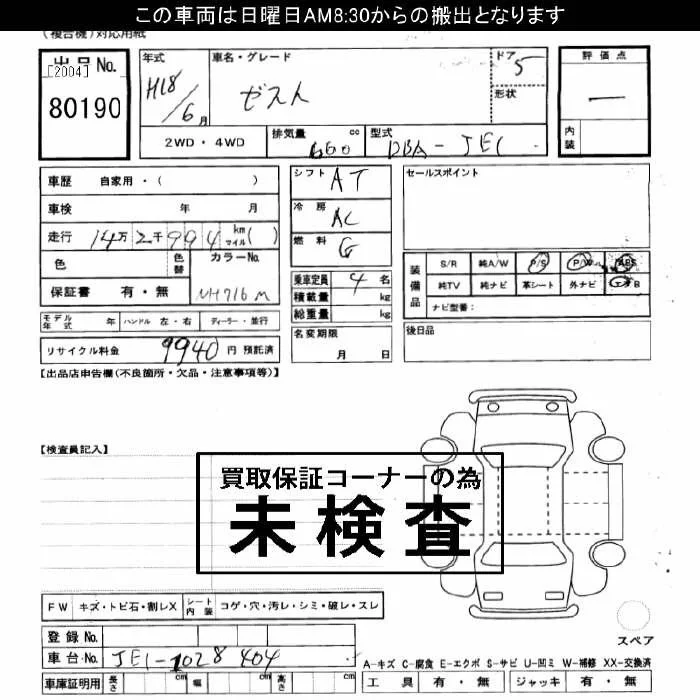 この車両は日曜日AM8:30からの搬出となります
(複合機)対応用紙
出品No. [2004] 80190
年式 H18/6月
車名・グレード ゼスト
ドア 5
形状
評価点 ―
内装
2WD・4WD
排気量 660 cc
型式 DBA-JE1
車歴 自家用・( )
車検 年 月
走行 14万2千994 km マイル( )
色 色替 カラーNo.
保証書 有・無 NH716M
シフト AT
冷房 AC
燃料 G
乗車定員 4名
積載量 kg
総重量 kg
セールスポイント
装備品 S/R 純A/W P/S P/W ABS
純TV 純ナビ 革シート 外ナビ エアB
ナビ型番:
モデル年式 年 ハンドル 左・右 ディーラー・並行
名変期限 月 日
後日品
リサイクル料金 9940 円 預託済
【出品店申告欄(不良箇所・欠品・注意事項等)】
【検査員記入】
買取保証コーナーの為
未検査
FW キズ・トビ石・割レX シート内装 コゲ・穴・汚レ・シミ・破レ・スレ
スペア
登録No.
車台No. JE1-1028404
A-キズ C-腐食 E-エクボ S-サビ U-凹ミ W-補修 XX-交換済
車庫証明用 長さ cm 幅 cm 高さ cm
工具 有・無 ジャッキ 有・無